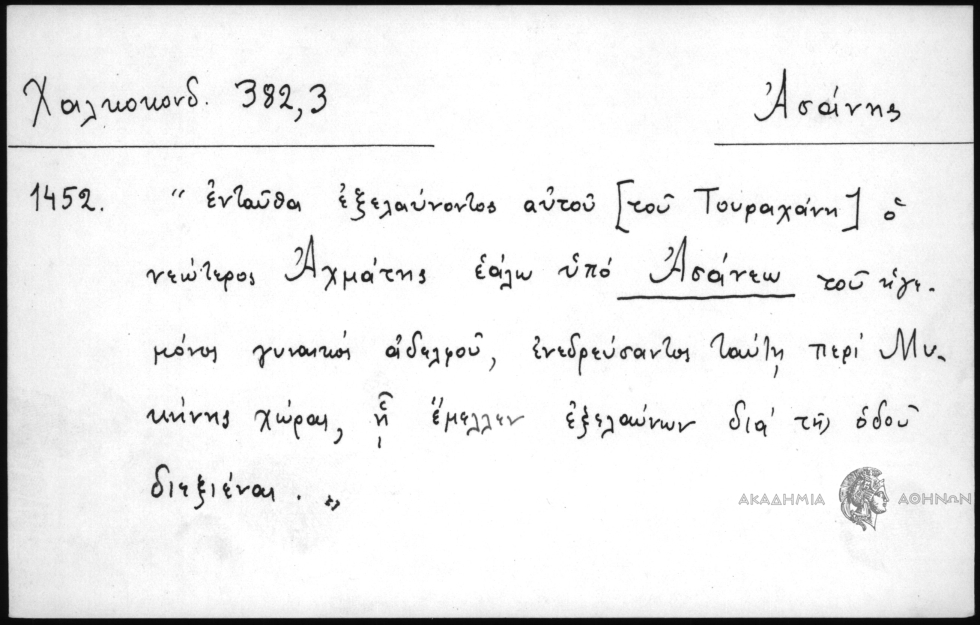 Χαλκοκονδ. 382,3
Ἀσάνης
1452. “ ἐνταῦθα ἐξελαύνοντος αὐτοῦ [τοῦ Τουραχάνη] ὁ
νεώτερος Ἀχμάτης ἑάλω ὑπό Ἀσάνεω τοῦ ἡγε-
μόνος γυναικός ἀδελφοῦ, ἐνεδρεύσαντος ταύτῃ περί Μυ-
κήνης χώρας, ᾗ ἔμελλεν ἐξελαύνων διά τῆς ὁδοῦ
διεξιέναι. „
ΑΚΑΔΗΜΙΑ ΑΘΗΝΩΝ